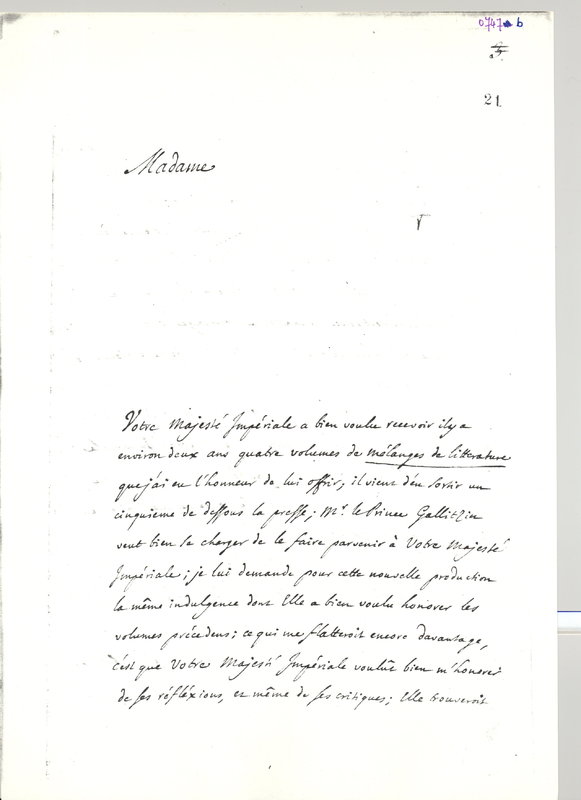 0747 b
21
Madame
Votre Majesté Impériale a bien voulu recevoir il y a
environ deux ans quatre volumes de mélanges de litterature
que j'ai eu l'honneur de lui offrir; il vient d'en sortir un
cinquieme de dessous la presse; Mr. le Prince Gallitzin
veut bien se charger de le faire parvenir à Votre Majesté
Impériale; je lui demande pour cette nouvelle production
la même indulgence dont Elle a bien voulu honorer les
volumes précedens; ce qui me flatteroit encore davantage,
c'est que Votre Majesté Impériale voulût bien m'honorer
de ses réfléxions, et même de ses critiques; Elle trouveroit